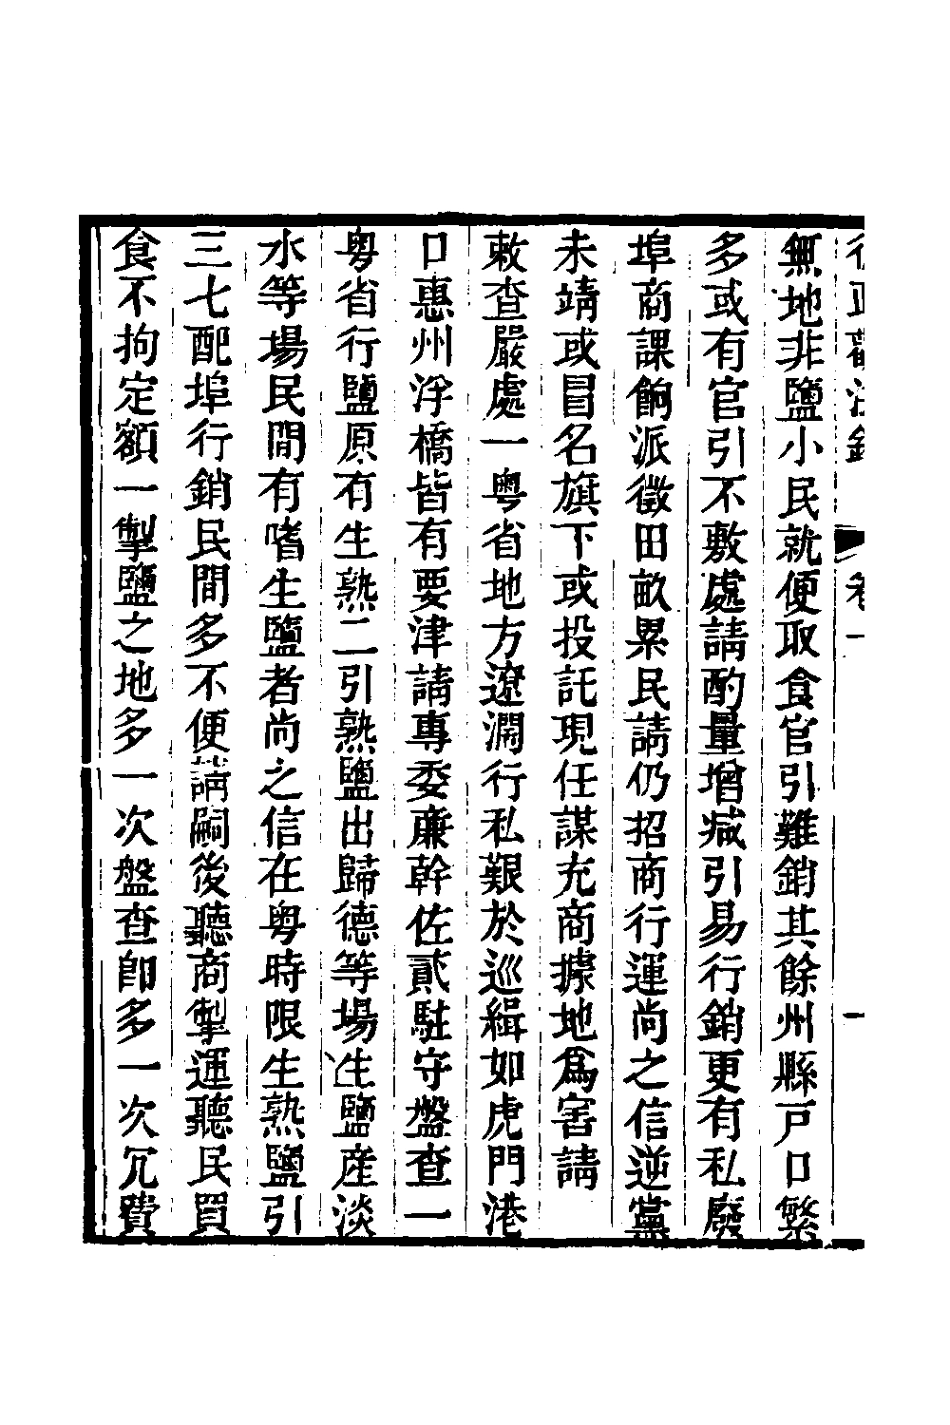 無地非鹽小民就便取食官引難銷其餘州縣戸口繁
多或有官引不敷處請酌量增减引易行銷更有私廢
埠商課餉派徵田畝累民請仍招商行運尚之信逆黨
未靖或冒名旗下或投託現任謀充商據地爲害請
敕查嚴處一粤省地方遼濶行私艱於巡緝如虎門港
口惠州浮橋皆有要津請專委亷幹佐貳駐守盤查一
粤省行鹽原有生熟二引熟鹽出歸德等場生鹽産淡
水等場民間有嗜生鹽者尚之信在粤時限生熟鹽引
三七配埠行銷民間多不便請嗣後聽商掣運聽民買
食不拘定額一掣鹽之地多一次盤查卽多一次冗費